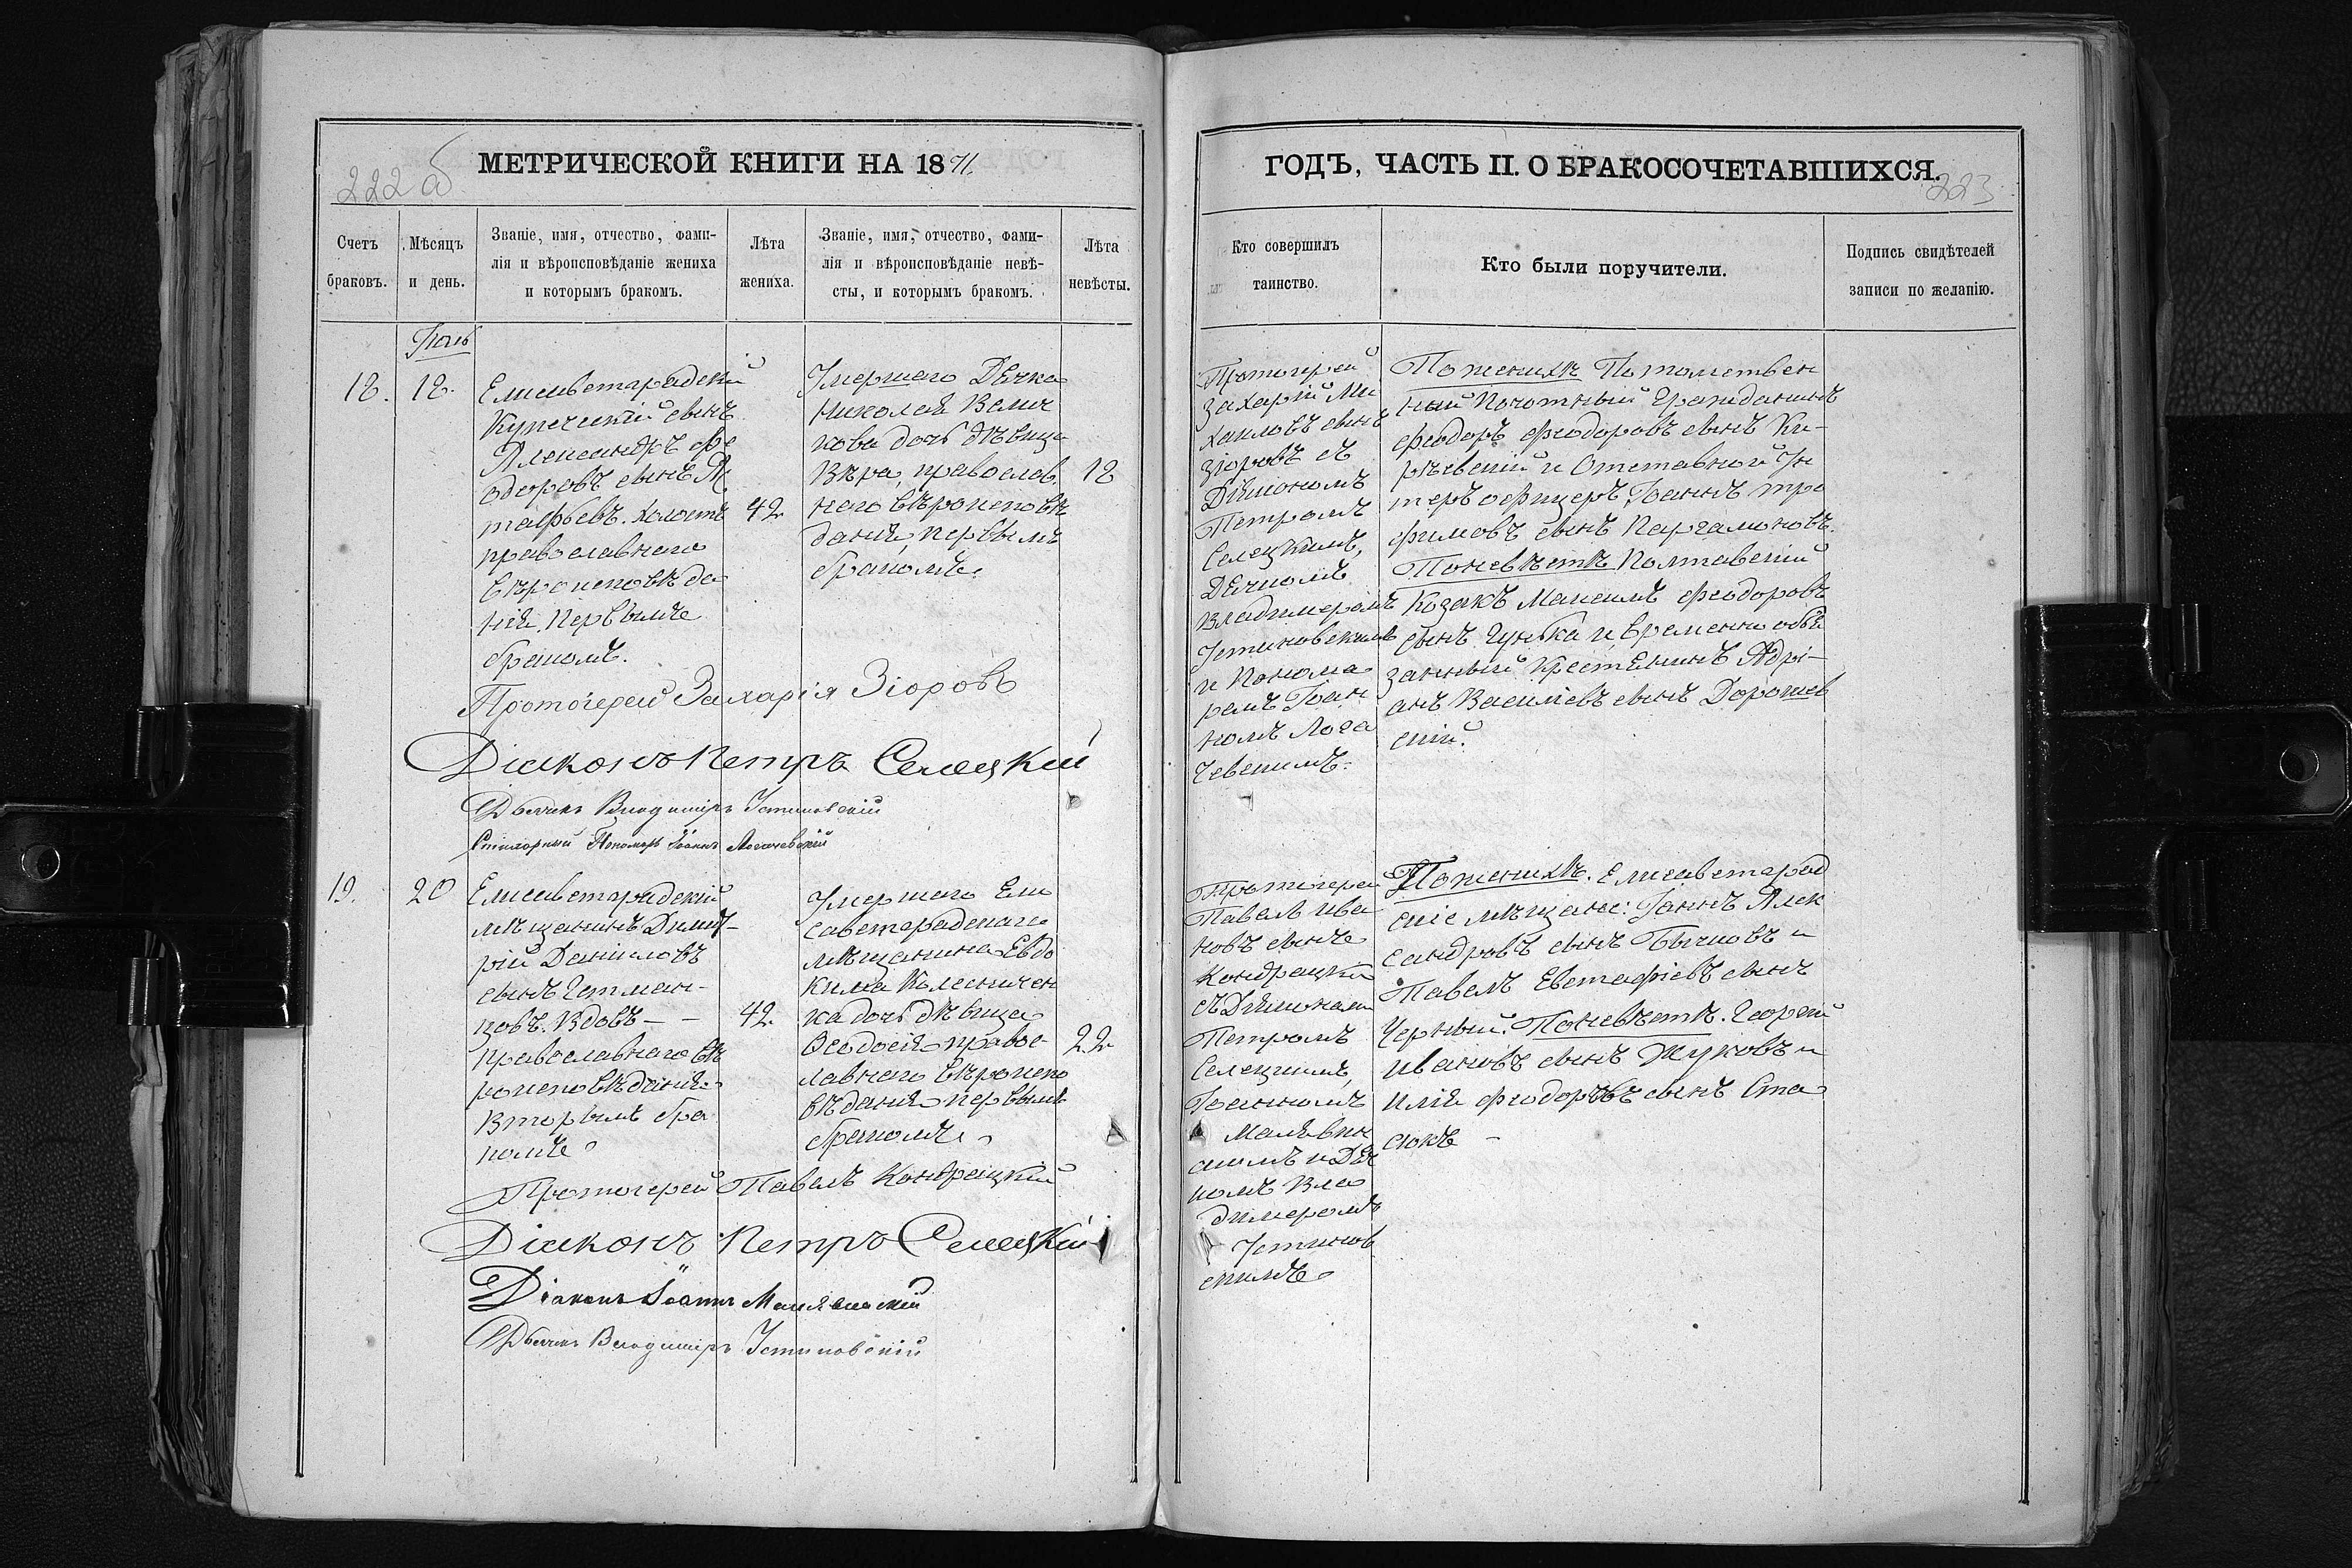 222 об
МЕТРИЧЕСКОЙ КНИГИ НА 1871.
Счетъ
браковъ.
Мѣсяцъ
и день.
Званіе, имя, отчество, фами-
лія и вѣроисповѣданіе жениха
и которымъ бракомъ.
Лѣта
жениха.
Званіе, имя, отчество, фами-
лія и вѣроисповѣданіе невѣ-
сты, и которымъ бракомъ.
Лѣта
невѣсты.
18.
18.
Елисаветградскій
Купеческій сынъ
Александръ Ѳе
одоровъ сынъ
Холостъ
православнаго
вѣроисповѣда
нія, Первымъ
бракомъ.
42
Умершаго Дьячка
Николая Велич
кова дочь дѣвица
Вѣра, православ
наго вѣроисповѣ
данія, первымъ
бракомъ.
18
Протоіерей Захарія Зіоровъ
Діаконъ Петръ Селецкій
Дьячекъ Владиміръ Устиновскій
Стихарный Пономарь Іоаннъ Логачевскій
19.
20
Елисаветградскій
мѣщанинъ Димит-
рій Даніиловъ
сынъ Гетман-
цовъ. Вдовъ - -
Православнаго вѣ
роисповѣданія
Вторымъ бра
комъ
42.
Умершаго Ели
саветградскаго
мѣщанина Евдо
кима Колесничен
ка дочь дѣвица
Ѳеодосія правос-
лавнаго вѣроиспо
вѣданія первымъ
бракомъ
22
Протоіерей Павелъ Кондрацкій
Діаконъ Петръ Селецкій
Діаконъ Іоаннъ Малявинскій
Дьячекъ Владиміръ Устиновскій
223
ГОДЪ, ЧАСТЬ II. О БРАКОСОЧЕТАВШИХСЯ.
Кто совершилъ
таинство.
Кто были поручители.
Подпись свидѣтелей
записи по желанію.
Протоіерей
Захарій Ми
хаиловъ сынъ
Зіоровъ съ
Діякономъ
Петромъ
Селецкимъ,
Дьячкомъ
Владимеромъ
Устиновскимъ
и Понома
ремъ Іоан
номъ Лога
чевскимъ.
По женихѣ Потомствен
ный Почотный Гражданинъ
Ѳеодоръ Ѳеодоровъ сынъ Ки-
рѣевскій и Отставной Ун
теръ офицеръ, Іоаннъ Тро
фимовъ сынъ Паргамоновъ.
По невѣстѣ Полтавскій
Козакъ Максимъ Ѳеодоровъ
сынъ Гунька и, временно обя
занный Крестьянинъ Адрі-
анъ Василіевъ сынъ Дорошев
скій.
Протоіерей
Павелъ Ива
новъ сынъ
Кондрацкій
съ Діяконами
Петромъ
Селецкимъ,
Іоанномъ
Малявин
скимъ и Дьяч
комъ Вла
димеромъ
Устинов
скимъ
По женихѣ. Елисаветград
скіе мѣщане: Іаннъ Алек
сандровъ сынъ Бычковъ и
Павелъ Евстафіевъ сынъ
Черный. По невѣстѣ. Георгій
Ивановъ сынъ Жуковъ и
Илія Ѳеодоровъ сынъ Ста
сюкъ -